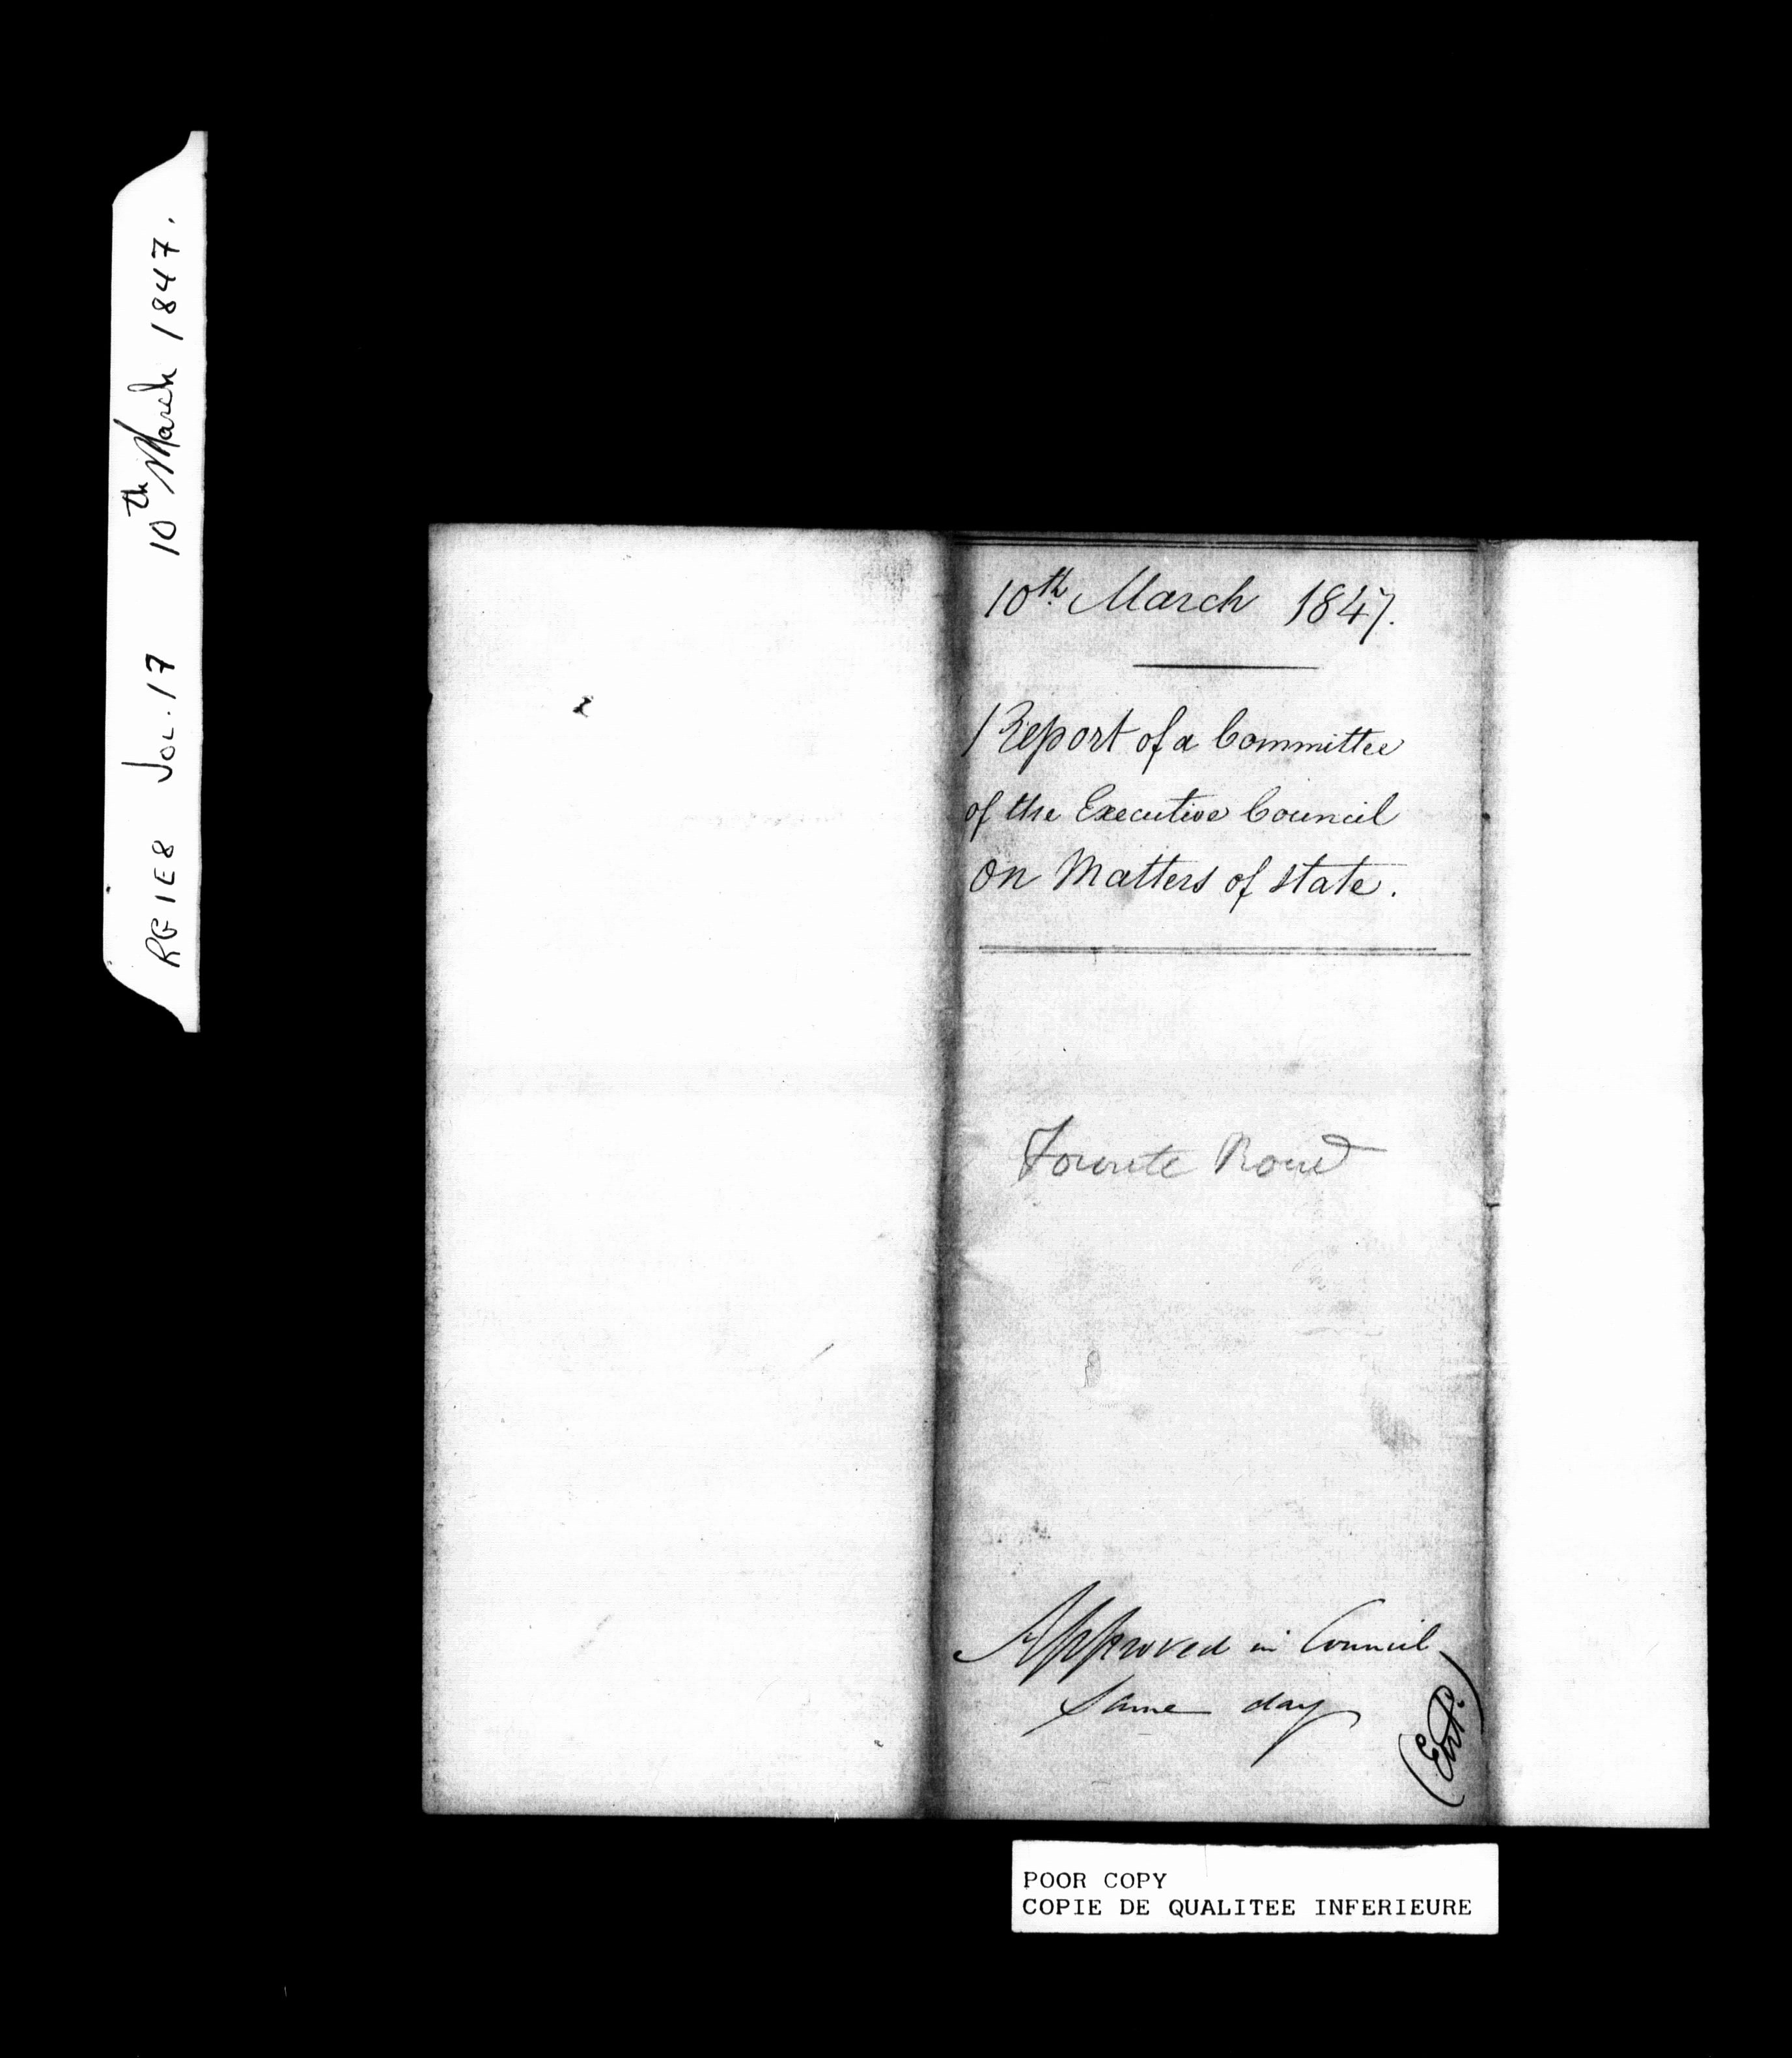 RG1E8 Vol. 17 10th March 1847.
10th March 1847.
Report of a Committee
of the Executive Council
On Matters of State.
Approved in Council
Same day
(Ent.)
POOR COPY
COPIE DE QUALITEE INFERIEURE